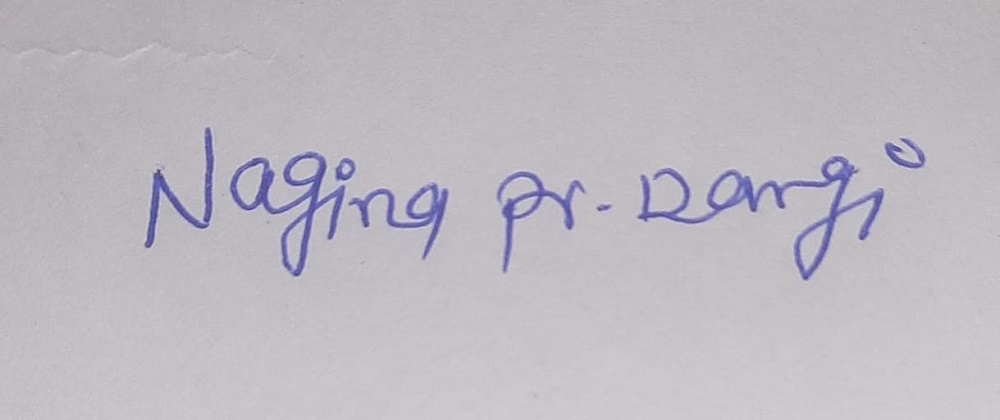 Nagina pr. Dangi